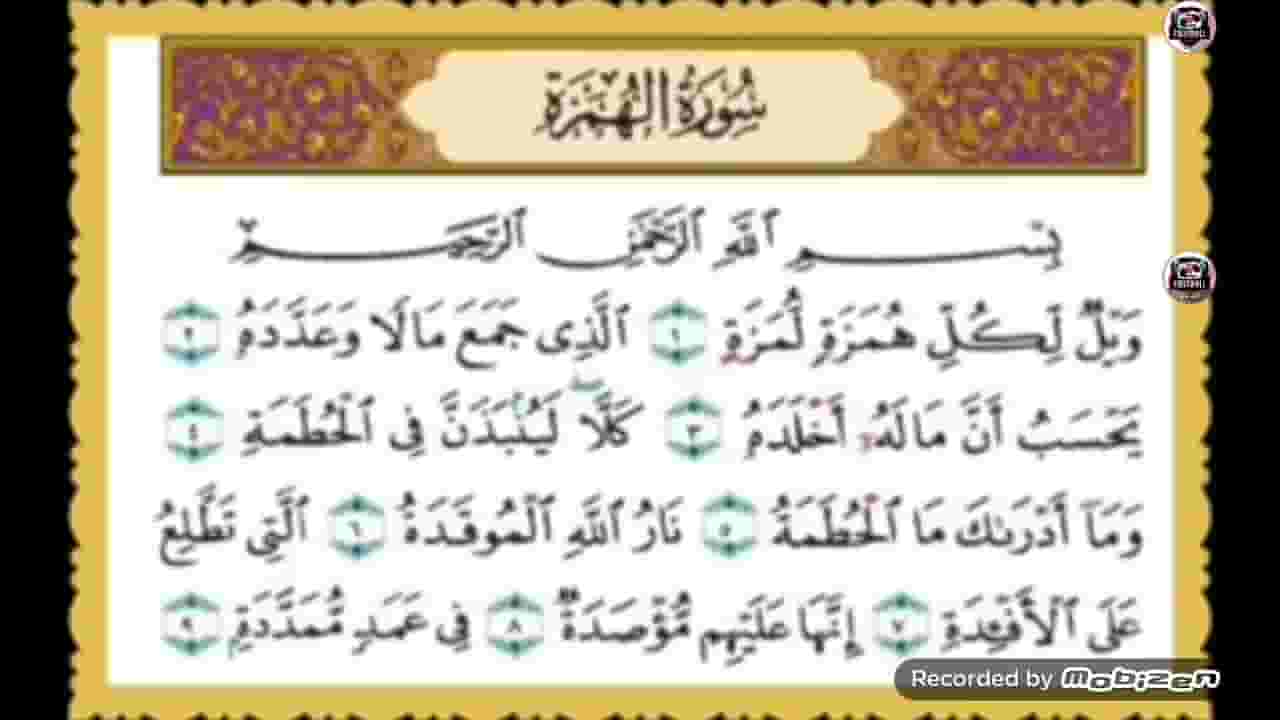 سُورَةُ الهُمَزَةِ
بِسْمِ ٱللَّهِ ٱلرَّحْمَٰنِ ٱلرَّحِيمِ
وَيْلٌ لِّكُلِّ هُمَزَةٍ لُّمَزَةٍ ١ ٱلَّذِى جَمَعَ مَالًا وَعَدَّدَهُۥ ٢
يَحْسَبُ أَنَّ مَالَهُۥٓ أَخْلَدَهُۥ ٣ كَلَّا ۖ لَيُنۢبَذَنَّ فِى ٱلْحُطَمَةِ ٤
وَمَآ أَدْرَىٰكَ مَا ٱلْحُطَمَةُ ٥ نَارُ ٱللَّهِ ٱلْمُوقَدَةُ ٦ ٱلَّتِى تَطَّلِعُ
عَلَى ٱلْأَفْـِٔدَةِ ٧ إِنَّهَا عَلَيْهِم مُّؤْصَدَةٌ ٨ فِى عَمَدٍ مُّمَدَّدَةٍۭ ٩
Recorded by Mobizen